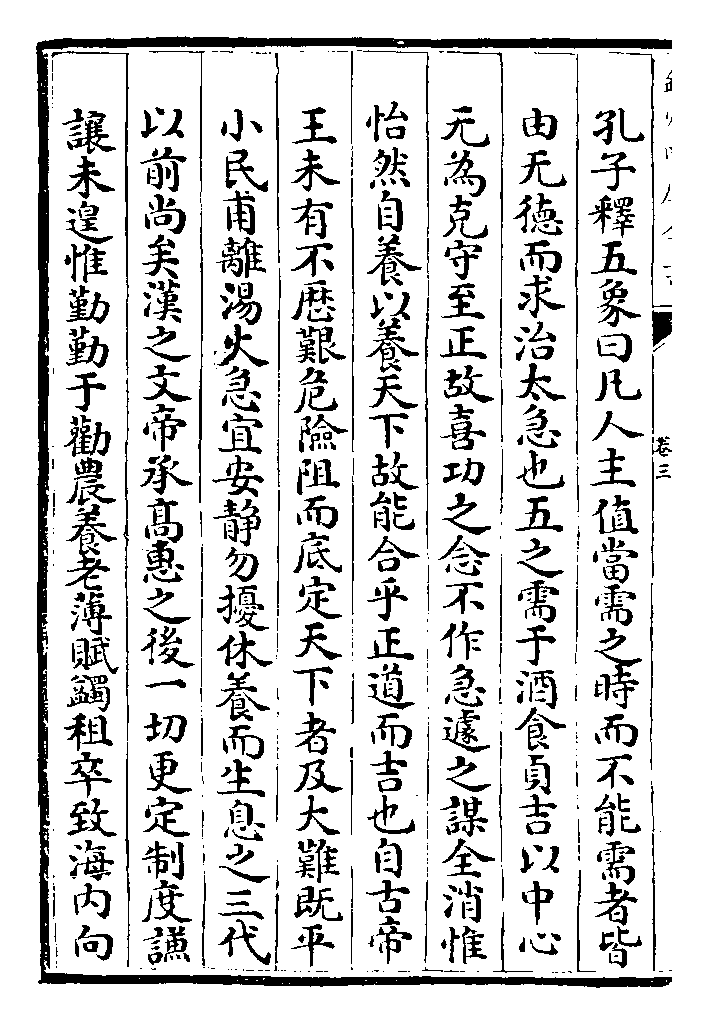 卷三
孔子釋五象曰凡人主值當需之時而不能需者皆
由无德而求治太急也五之需于酒食貞吉以中心
无為克守至正故喜功之念不作急遽之謀全消惟
怡然自養以養天下故能合乎正道而吉也自古帝
王未有不歴艱危險阻而底定天下者及大難既平
小民甫離湯火急宜安静勿擾休養而生息之三代
以前尚矣漢之文帝承髙惠之後一切更定制度謙
讓未遑惟勤勤于勸農養老薄賦蠲租卒致海内向